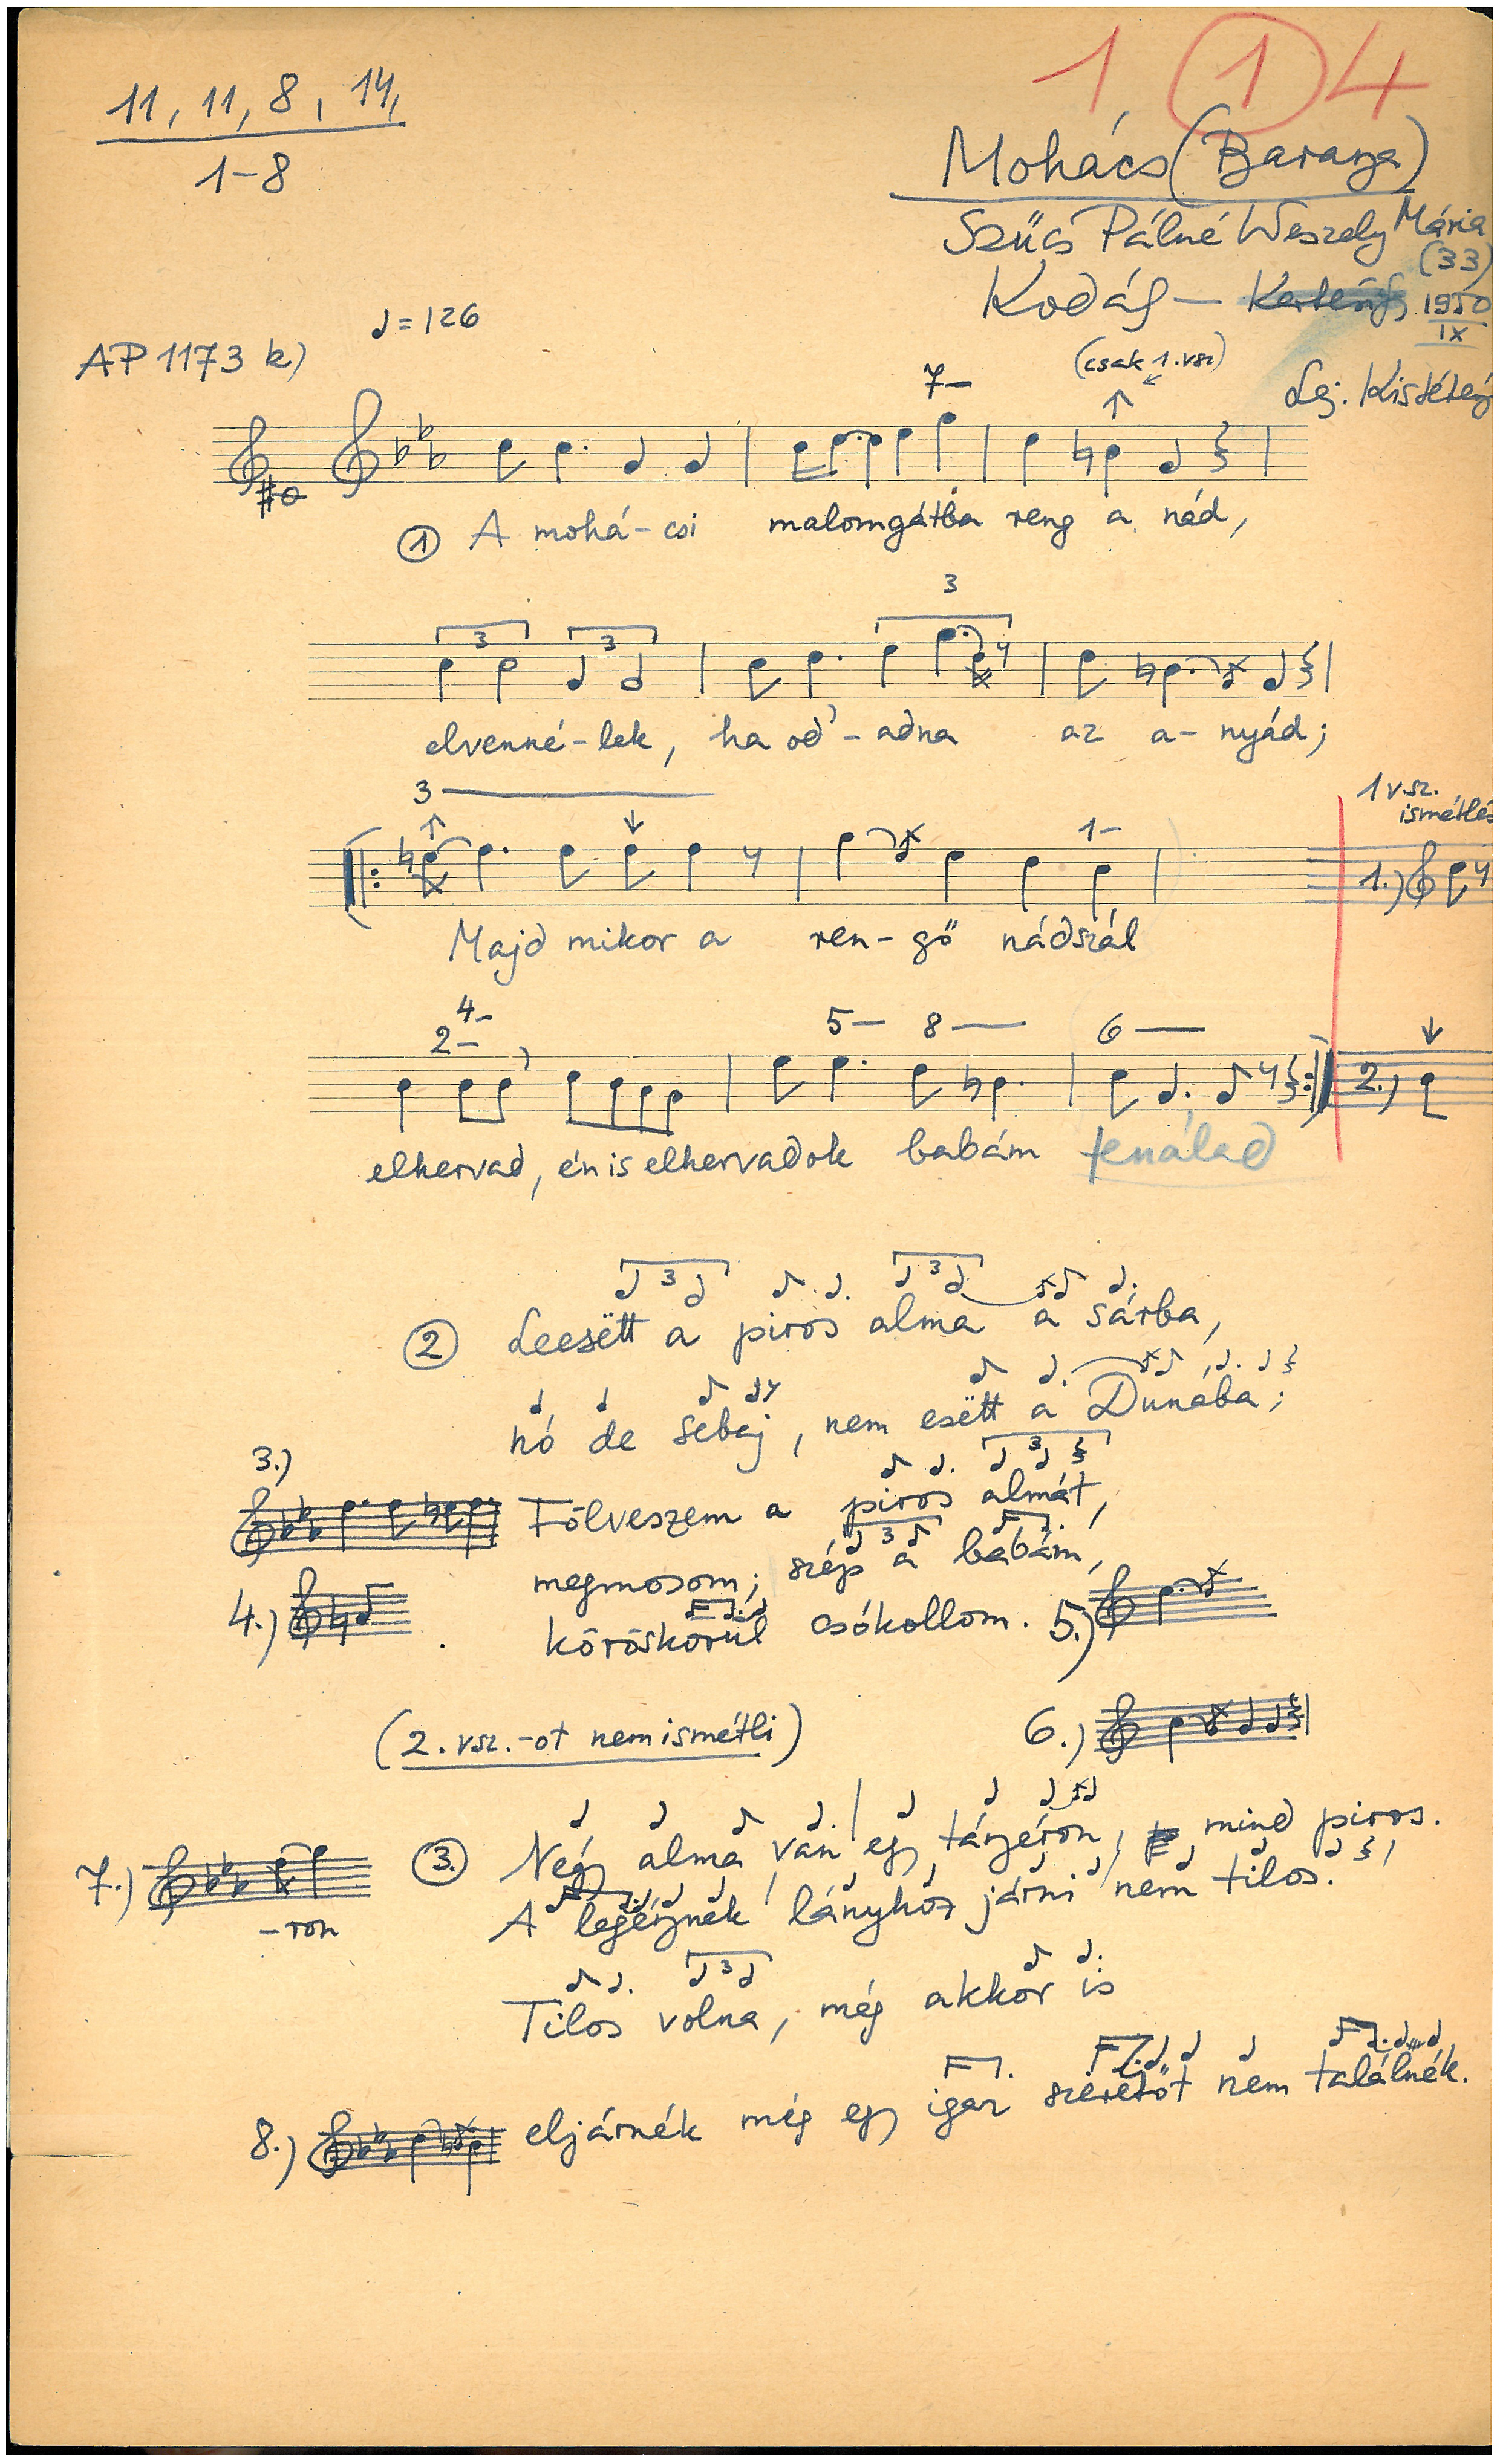 1 1 4
11, 11, 8, 14,
1-8
Mohács (Baranya)
Szűcs Pálné Weszely Mária
(33)
Kodály — Kertész 1950
IX
♩ = 126
AP 1173 k)
Lej. Kistétény
(csak 1. vsz)
7-
① A mohá-csi malomgátba reng a nád,
3
3 3
elvenné-lek, ha od'-adna az a-nyád;
3
1-
1 vsz. ismétlés
1.)
Majd mikor a ren-gő nádszál
4-
2- 5- 8- 6-
2.)
elhervad, én is elhervadok babám tenálad
3 3
② Leesëtt a piros alma a sárba,
nó de sebaj, nem esëtt a Dunába;
3.) 3
Fölveszem a piros almát,
3
megmosom; szép a babám,
4.) köröskörül csókollom. 5.)
(2. vsz.-ot nem ismétli) 6.)
7.) ③ Négy alma van egy tányéron, mind piros.
-ron
A legénynek lányhoz járni nem tilos.
3
Tilos volna, még akkor is
8.) eljárnék még egy igaz szeretőt nem találnék.